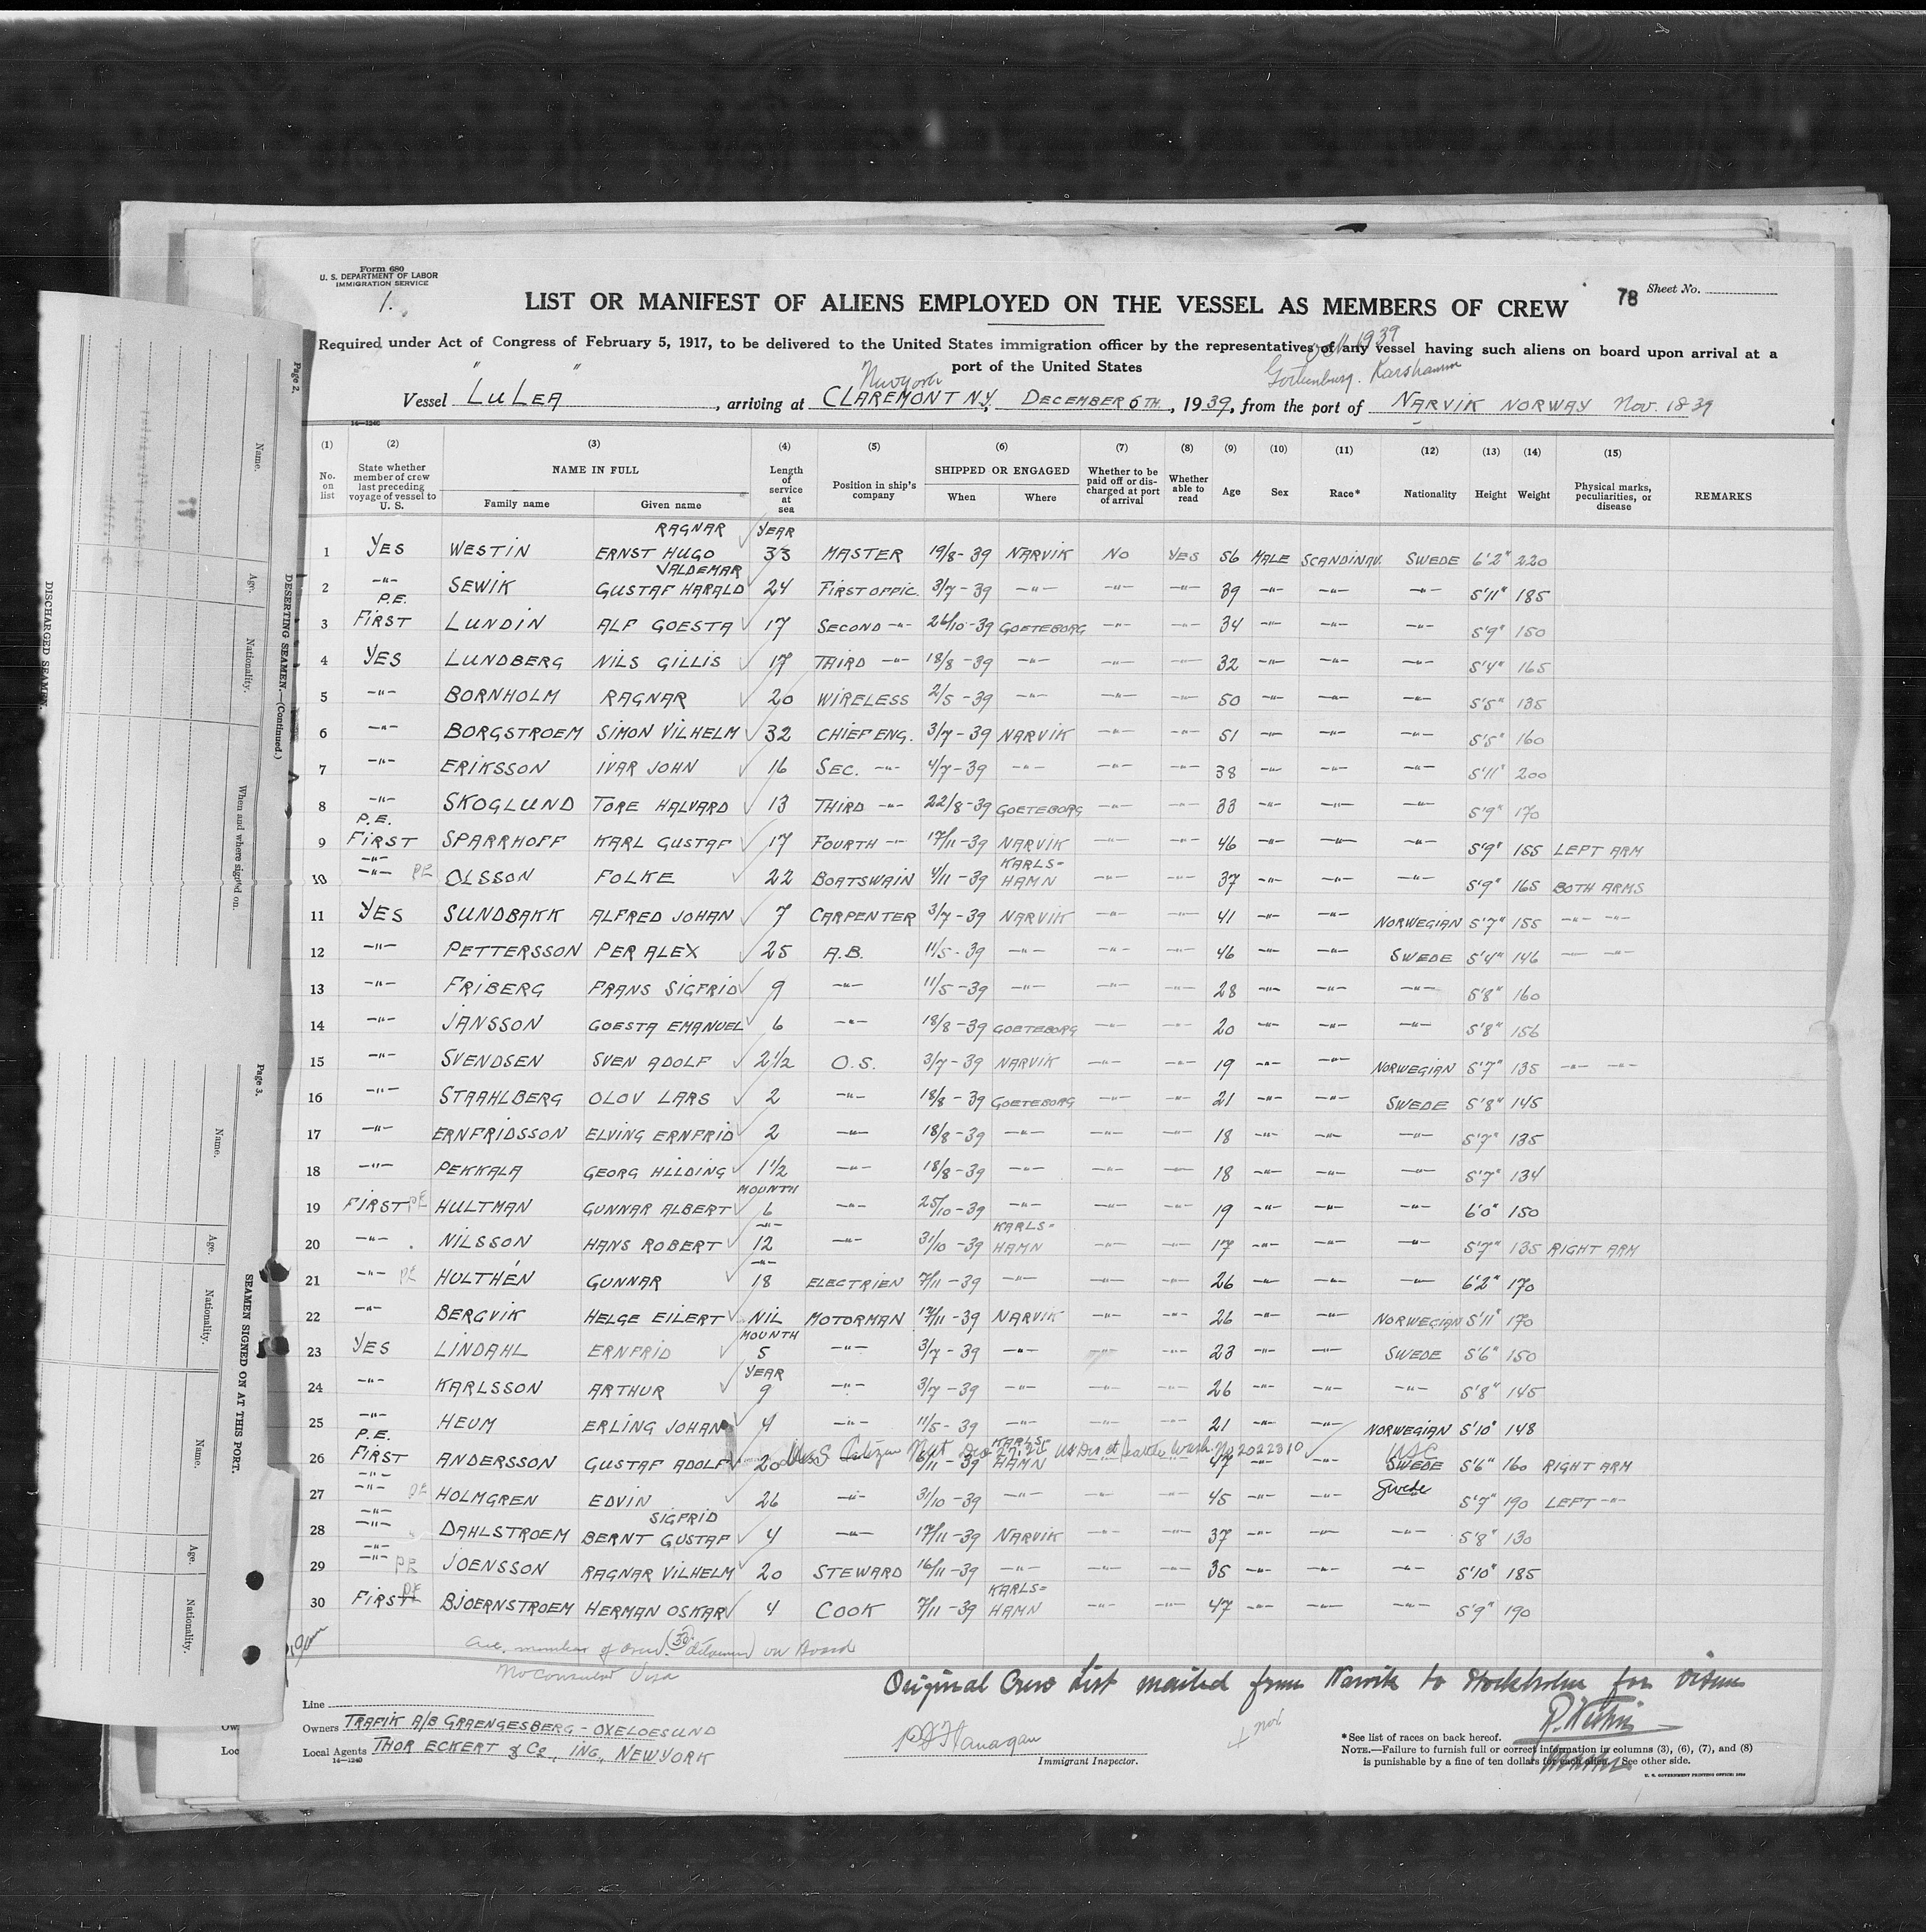 Form 680
U. S. DEPARTMENT OF LABOR
IMMIGRATION SERVICE
1.
LIST OR MANIFEST OF ALIENS EMPLOYED ON THE VESSEL AS MEMBERS OF CREW
78 Sheet No.
Required under Act of Congress of February 5, 1917, to be delivered to the United States immigration officer by the representatives of any vessel having such aliens on board upon arrival at a
port of the United States
1939
New York
Vessel "LULEA", arriving at CLAREMONT N.Y., DECEMBER 6TH, 1939, from the port of NARVIK NORWAY Nov. 18 39
14—1240
(1) (2) (3) (4) (5) (6) (7) (8) (9) (10) (11) (12) (13) (14) (15)
No. on list State whether member of crew last preceding voyage of vessel to U. S. NAME IN FULL Family name Given name Length of service at sea Position in ship's company SHIPPED OR ENGAGED When Where Whether to be paid off or discharged at port of arrival Whether able to read Age Sex Race* Nationality Height Weight Physical marks, peculiarities, or disease REMARKS
RAGNAR YEAR
1 YES WESTIN ERNST HUGO 33 MASTER 19/8-39 NARVIK NO YES 56 MALE SCANDINAV. SWEDE 6'2" 220
VALDEMAR
2 -"- SEWIK GUSTAF HARALD 24 FIRST OFFIC. 3/7-39 -"- -"- -"- 39 -"- -"- -"- 5'11" 185
P.E.
3 FIRST LUNDIN ALF GOESTA 17 SECOND -"- 26/10-39 GOETEBORG -"- -"- 34 -"- -"- -"- 5'9" 150
4 YES LUNDBERG NILS GILLIS 17 THIRD -"- 18/8-39 -"- -"- -"- 32 -"- -"- -"- 5'4" 165
5 -"- BORNHOLM RAGNAR 20 WIRELESS 2/5-39 -"- -"- -"- 50 -"- -"- -"- 5'5" 135
6 -"- BORGSTROEM SIMON VILHELM 32 CHIEF ENG. 3/7-39 NARVIK -"- -"- 51 -"- -"- -"- 5'5" 160
7 -"- ERIKSSON IVAR JOHN 16 SEC. -"- 4/7-39 -"- -"- -"- 38 -"- -"- -"- 5'11" 200
8 -"- SKOGLUND TORE HALVARD 13 THIRD -"- 22/8-39 GOETEBORG -"- -"- 33 -"- -"- -"- 5'9" 170
P.E.
9 FIRST SPARRHOFF KARL GUSTAF 17 FOURTH -"- 17/11-39 NARVIK -"- -"- 46 -"- -"- -"- 5'9" 155 LEFT ARM
-"- KARLS=
10 -"- PE OLSSON FOLKE 22 BOATSWAIN 4/11-39 HAMN -"- -"- 37 -"- -"- -"- 5'9" 165 BOTH ARMS
11 YES SUNDBAKK ALFRED JOHAN 7 CARPENTER 3/7-39 NARVIK -"- -"- 41 -"- -"- NORWEGIAN 5'7" 155 -"- -"-
12 -"- PETTERSSON PER ALEX 25 A.B. 11/5-39 -"- -"- -"- 46 -"- -"- SWEDE 5'4" 146 -"- -"-
13 -"- FRIBERG FRANS SIGFRID 9 -"- 11/5-39 -"- -"- -"- 28 -"- -"- -"- 5'8" 160
14 -"- JANSSON GOESTA EMANUEL 6 -"- 18/8-39 GOETEBORG -"- -"- 20 -"- -"- -"- 5'8" 156
15 -"- SVENDSEN SVEN ADOLF 2 1/2 O.S. 3/7-39 NARVIK -"- -"- 19 -"- -"- NORWEGIAN 5'7" 135 -"- -"-
16 -"- STAAHLBERG OLOV LARS 2 -"- 18/8-39 GOETEBORG -"- -"- 21 -"- -"- SWEDE 5'8" 145
17 -"- ERNFRIDSSON ELVING ERNFRID 2 -"- 18/8-39 -"- -"- -"- 18 -"- -"- -"- 5'7" 135
18 -"- PEKKALA GEORG HILDING 1 1/2 -"- 18/8-39 -"- -"- -"- 18 -"- -"- -"- 5'7" 134
MOUNTH
19 FIRST PE HULTMAN GUNNAR ALBERT 6 -"- 25/10-39 -"- -"- -"- 19 -"- -"- -"- 6'0" 150
-"- KARLS=
20 -"- NILSSON HANS ROBERT 12 -"- 31/10-39 HAMN -"- -"- 17 -"- -"- -"- 5'7" 135 RIGHT ARM
-"-
21 -"- PE HULTHÉN GUNNAR 18 ELECTRIEN 7/11-39 -"- -"- -"- 26 -"- -"- -"- 6'2" 170
22 -"- BERGVIK HELGE EILERT NIL MOTORMAN 17/11-39 NARVIK -"- -"- 26 -"- -"- NORWEGIAN 5'11" 170
MOUNTH
23 YES LINDAHL ERNFRID 5 -"- 3/7-39 -"- -"- -"- 23 -"- -"- SWEDE 5'6" 150
YEAR
24 -"- KARLSSON ARTHUR 9 -"- 3/7-39 -"- -"- -"- 26 -"- -"- -"- 5'8" 145
25 -"- HEUM ERLING JOHAN 4 -"- 11/5-39 -"- -"- -"- 21 -"- -"- NORWEGIAN 5'10" 148
P.E. U.S. Citizen KARLS= No 2022310 USC
26 FIRST ANDERSSON GUSTAF ADOLF 20 6/11-39 HAMN -"- -"- 47 -"- -"- SWEDE 5'6" 160 RIGHT ARM
-"- Swede
27 -"- PE HOLMGREN EDVIN 26 -"- 31/10-39 -"- -"- -"- 45 -"- -"- 5'7" 190 LEFT -"-
-"- SIGFRID
28 -"- DAHLSTROEM BERNT GUSTAF 4 -"- 17/11-39 NARVIK -"- -"- 37 -"- -"- -"- 5'8" 130
-"-
29 -"- PE JOENSSON RAGNAR VILHELM 20 STEWARD 16/11-39 -"- -"- -"- 35 -"- -"- -"- 5'10" 185
PE KARLS=
30 FIRST BJOERNSTROEM HERMAN OSKAR 4 COOK 7/11-39 HAMN -"- -"- 47 -"- -"- -"- 5'9" 190
members of crew (30) detained on Board
No Consular Visa
Original Crew List mailed from Narvik to Stockholm for
Line
Owners TRAFIK A/B GRAENGESBERG - OXELOESUND
Local Agents THOR ECKERT & Co., ING., NEW YORK
14—1240
Flanagan
Immigrant Inspector.
*See list of races on back hereof.
NOTE.—Failure to furnish full or correct information in columns (3), (6), (7), and (8)
is punishable by a fine of ten dollars for each alien. See other side.
U. S. GOVERNMENT PRINTING OFFICE
Page 2.
DESERTING SEAMEN.—(Continued.)
Name. Age. Nationality. When and where signed on.
DISCHARGED SEAMEN.
Page 3.
SEAMEN SIGNED ON AT THIS PORT.
Name. Age. Nationality.
Name. Age. Nationality.